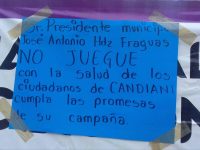 Sr. Presidente municipal
José Antonio Hdz Fraguas
NO JUEGUE
con la salud de los
ciudadanos de CANDIANI
cumpla las promesas
de su campaña.